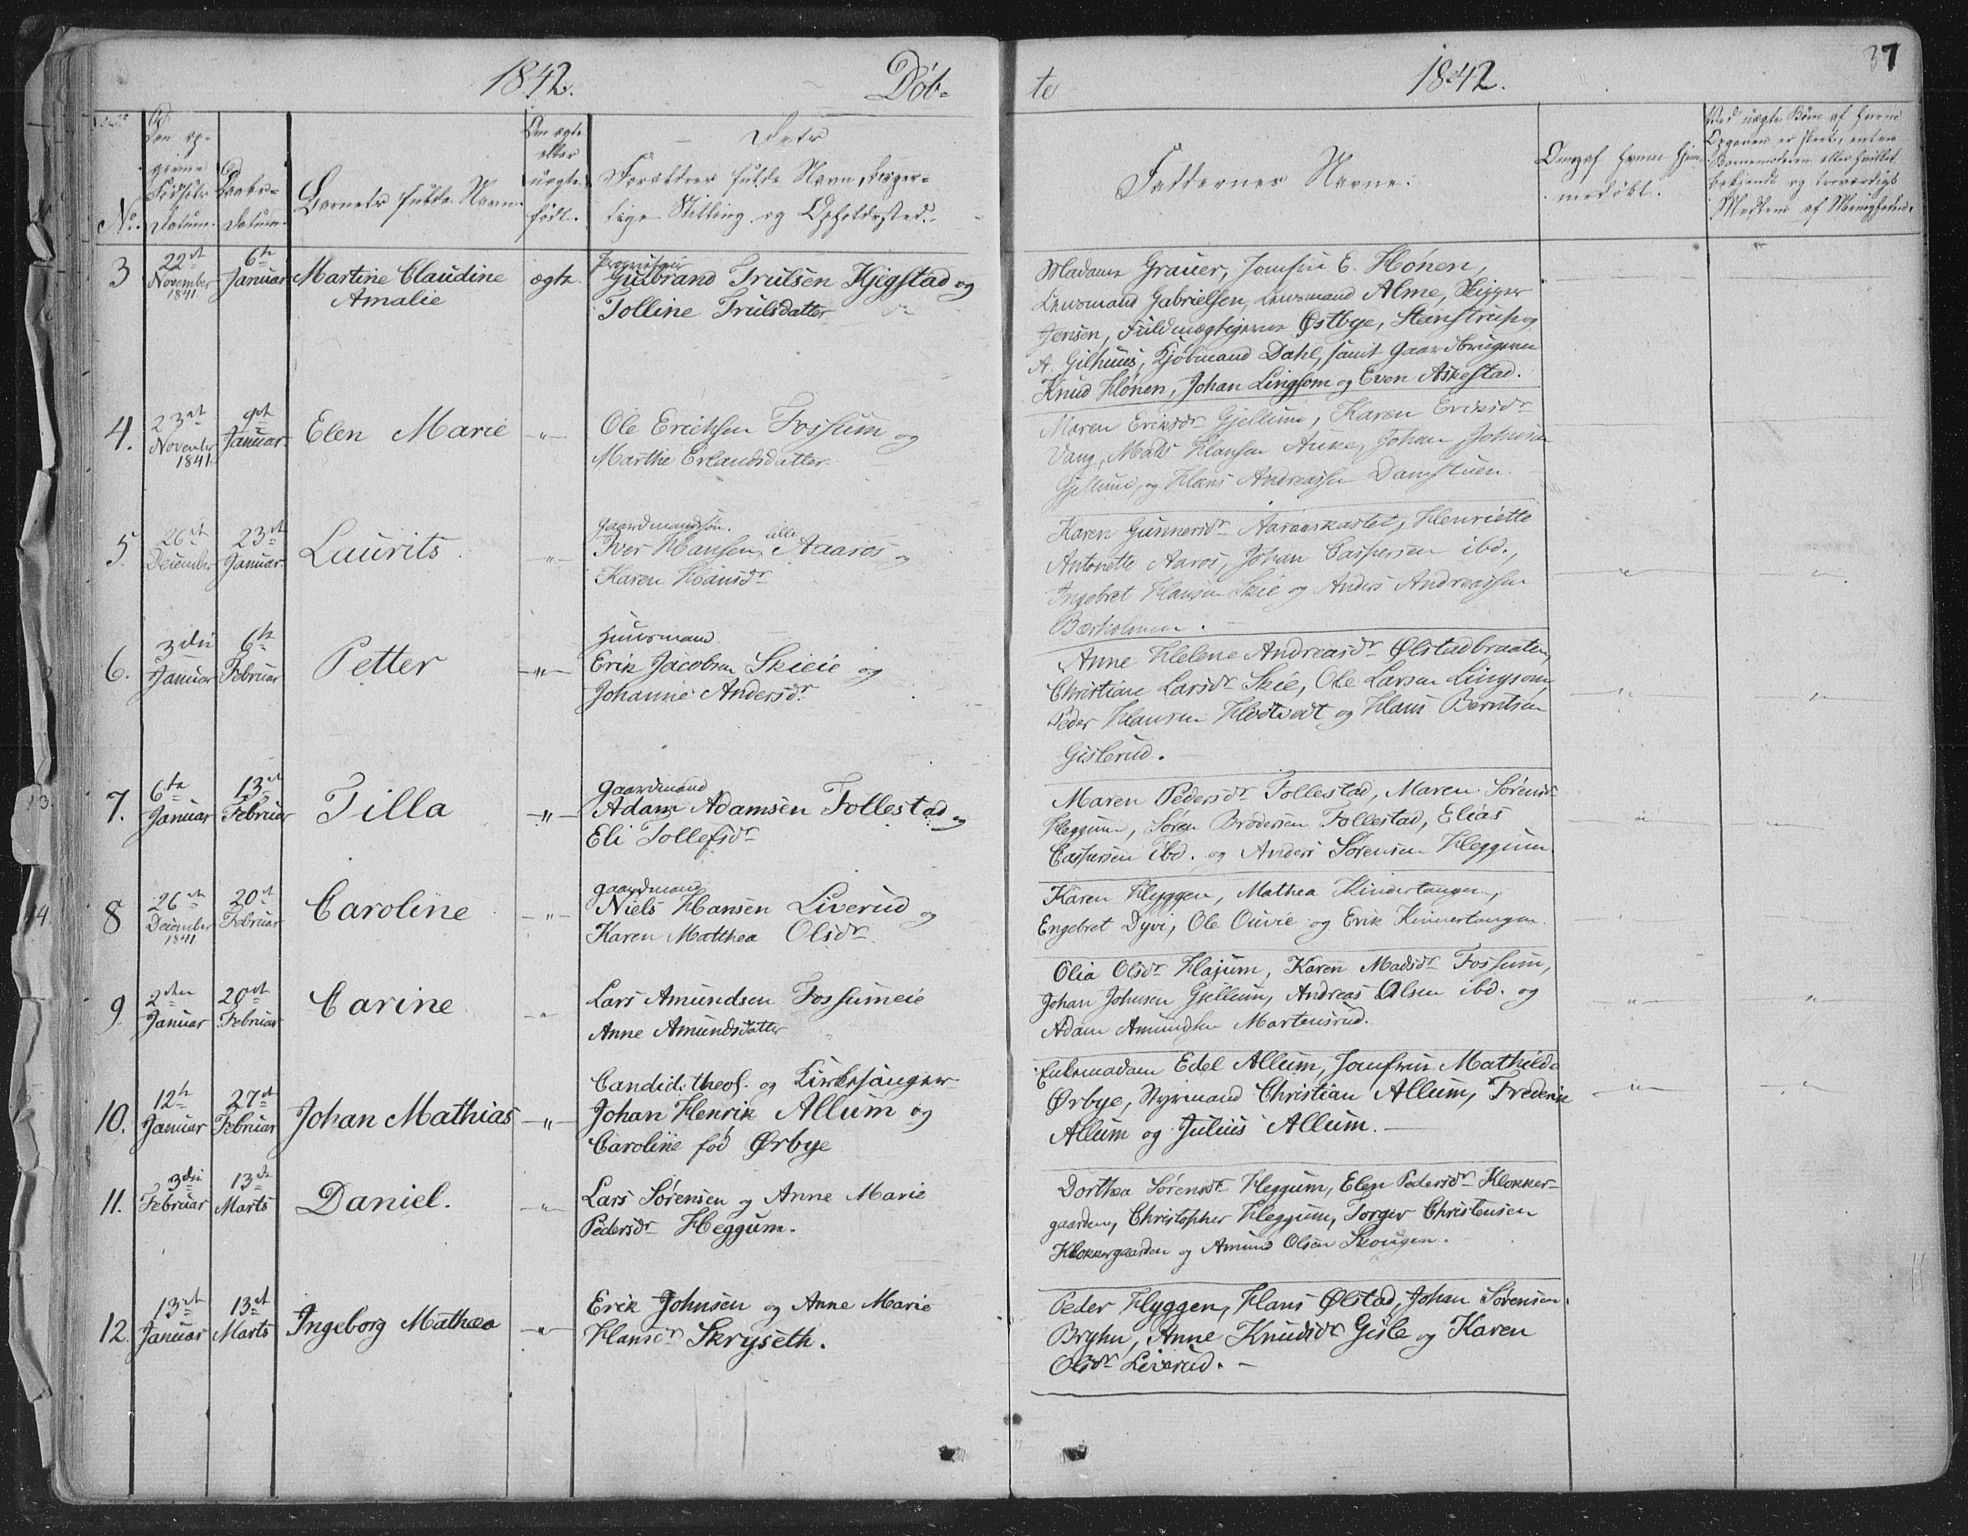 1842. Døb-
te 1842. 37
No.
Den op-
givne
Fødsels-
Datum.
Daabs-
Datum.
Barnets fulde Navn.
Om ægte
eller
uægte
født.
Dets
Forældres fulde Navn, borger-
lige Stilling og Opholdssted.
Faddernes Navne.
Om og af hvem hjem-
medøbt.
Ved uægte Børn af hvem
Opgaven er skeet, enten
Barnemoderen eller hvilket
bekjendt og troværdigt
Medlem af Menigheden.
3 22de November 1841 6te Januar Martine Claudine Amalie ægte
Gulbrand Trulsen Kjegstad og
Tolline Trulsdatter
Madame Grauer, Jomfru E. Hónen,
Lensmand Gabrielsen, Lensmand Alme, Skipper
Jensen, Fuldmægtigerne Østbye, Stenstrup og
A. Gilhuus, Kjøbmand Dahl, samt Gaardbrugerne
Knud Hónen, Johan Lingsom og Even Askestad.
4. 23de November 1841. 9de Januar Elen Marie -"-
Ole Erichsen Fossum og
Marthe Erlandsdatter
Maren Eriksdr Gjellum, Karen Eriksdr
Vang, Mads Hansen Auke, Johan Johnsen
Gjellum, og Hans Andreassen Damstuen.
5. 26de December 23de Januar Laurits -"-
Gaardmandssøn.
Iver Hansen, lille Aaros og
Karen Hansdr
Karen Gunnersdr Aaraaskastet, Henriette
Antonette Aaros, Johan Caspersen ibd.,
Ingebret Hansen Skie og Anders Andreassen
Bærholmen.
6. 3die Januar 6te Februar Petter -"-
Huusmand
Erik Jacobsen Skieie og
Johanne Andersdr
Anne Helene Andreasdr Ølstadbraaten,
Christiane Larsdr Skie, Ole Larsen Lingsom,
Peder Hansen Hødtvedt og Hans Berntsen
Gislerud.
7. 6te Januar 13de Februar Tilla -"-
Gaardmand
Adam Adamsen Follestad og
Eli Tollefsdr
Maren Pedersdr Follestad, Maren Sørensdr
Heggum, Søren Brødersen Follestad, Elias
Caspersen ibd. og Anders Sørensen Heggum.
8 26de December 1841 20de Februar Caroline -"-
Gaardmand
Niels Hansen Liverud og
Karen Matthea Olsdr
Karen Hyggen, Mathea Kindertangen,
Engebret Dyvi, Ole Ouvie og Erik Kinnertangen.
9. 2den Januar 20de Februar Carine
Lars Amundsen Fossumeie
Anne Amundsdatter
Olia Olsdr Hajum, Karen Madsdr Fossum,
Johan Johnsen Gjellum, Andreas Olsen ibd. og
Adam Amundsen Martensrud.
10. 12te Januar 27de Februar Johan Mathias -"-
Candid. theol. og Kirkesanger
Johan Henrik Allum og
Caroline fød Ørbye
Enkemadam Edel Allum, Jomfru Mathilde
Ørbye, Styrmand Christian Allum, Frederik
Allum og Julius Allum.
11. 3die Februar 13de Marts Daniel. -"-
Lars Sørensen og Anne Marie
Pedersdr Heggum.
Dorthea Sørensdr Heggum, Elen Pedersdr Klokker-
gaarden, Christopher Heggum, Torger Christensen
Klokkergaarden og Amund Olsen Skougen.
12. 13de Januar 13de Marts Ingeborg Mathea -"-
Erik Johnsen og Anne Marie
Hansdr Skryseth.
Peder Hyggen, Hans Ølstad, Johan Sørensen
Bryhn, Anne Knudsdr Gisle og Karen
Olsdr Liverud.